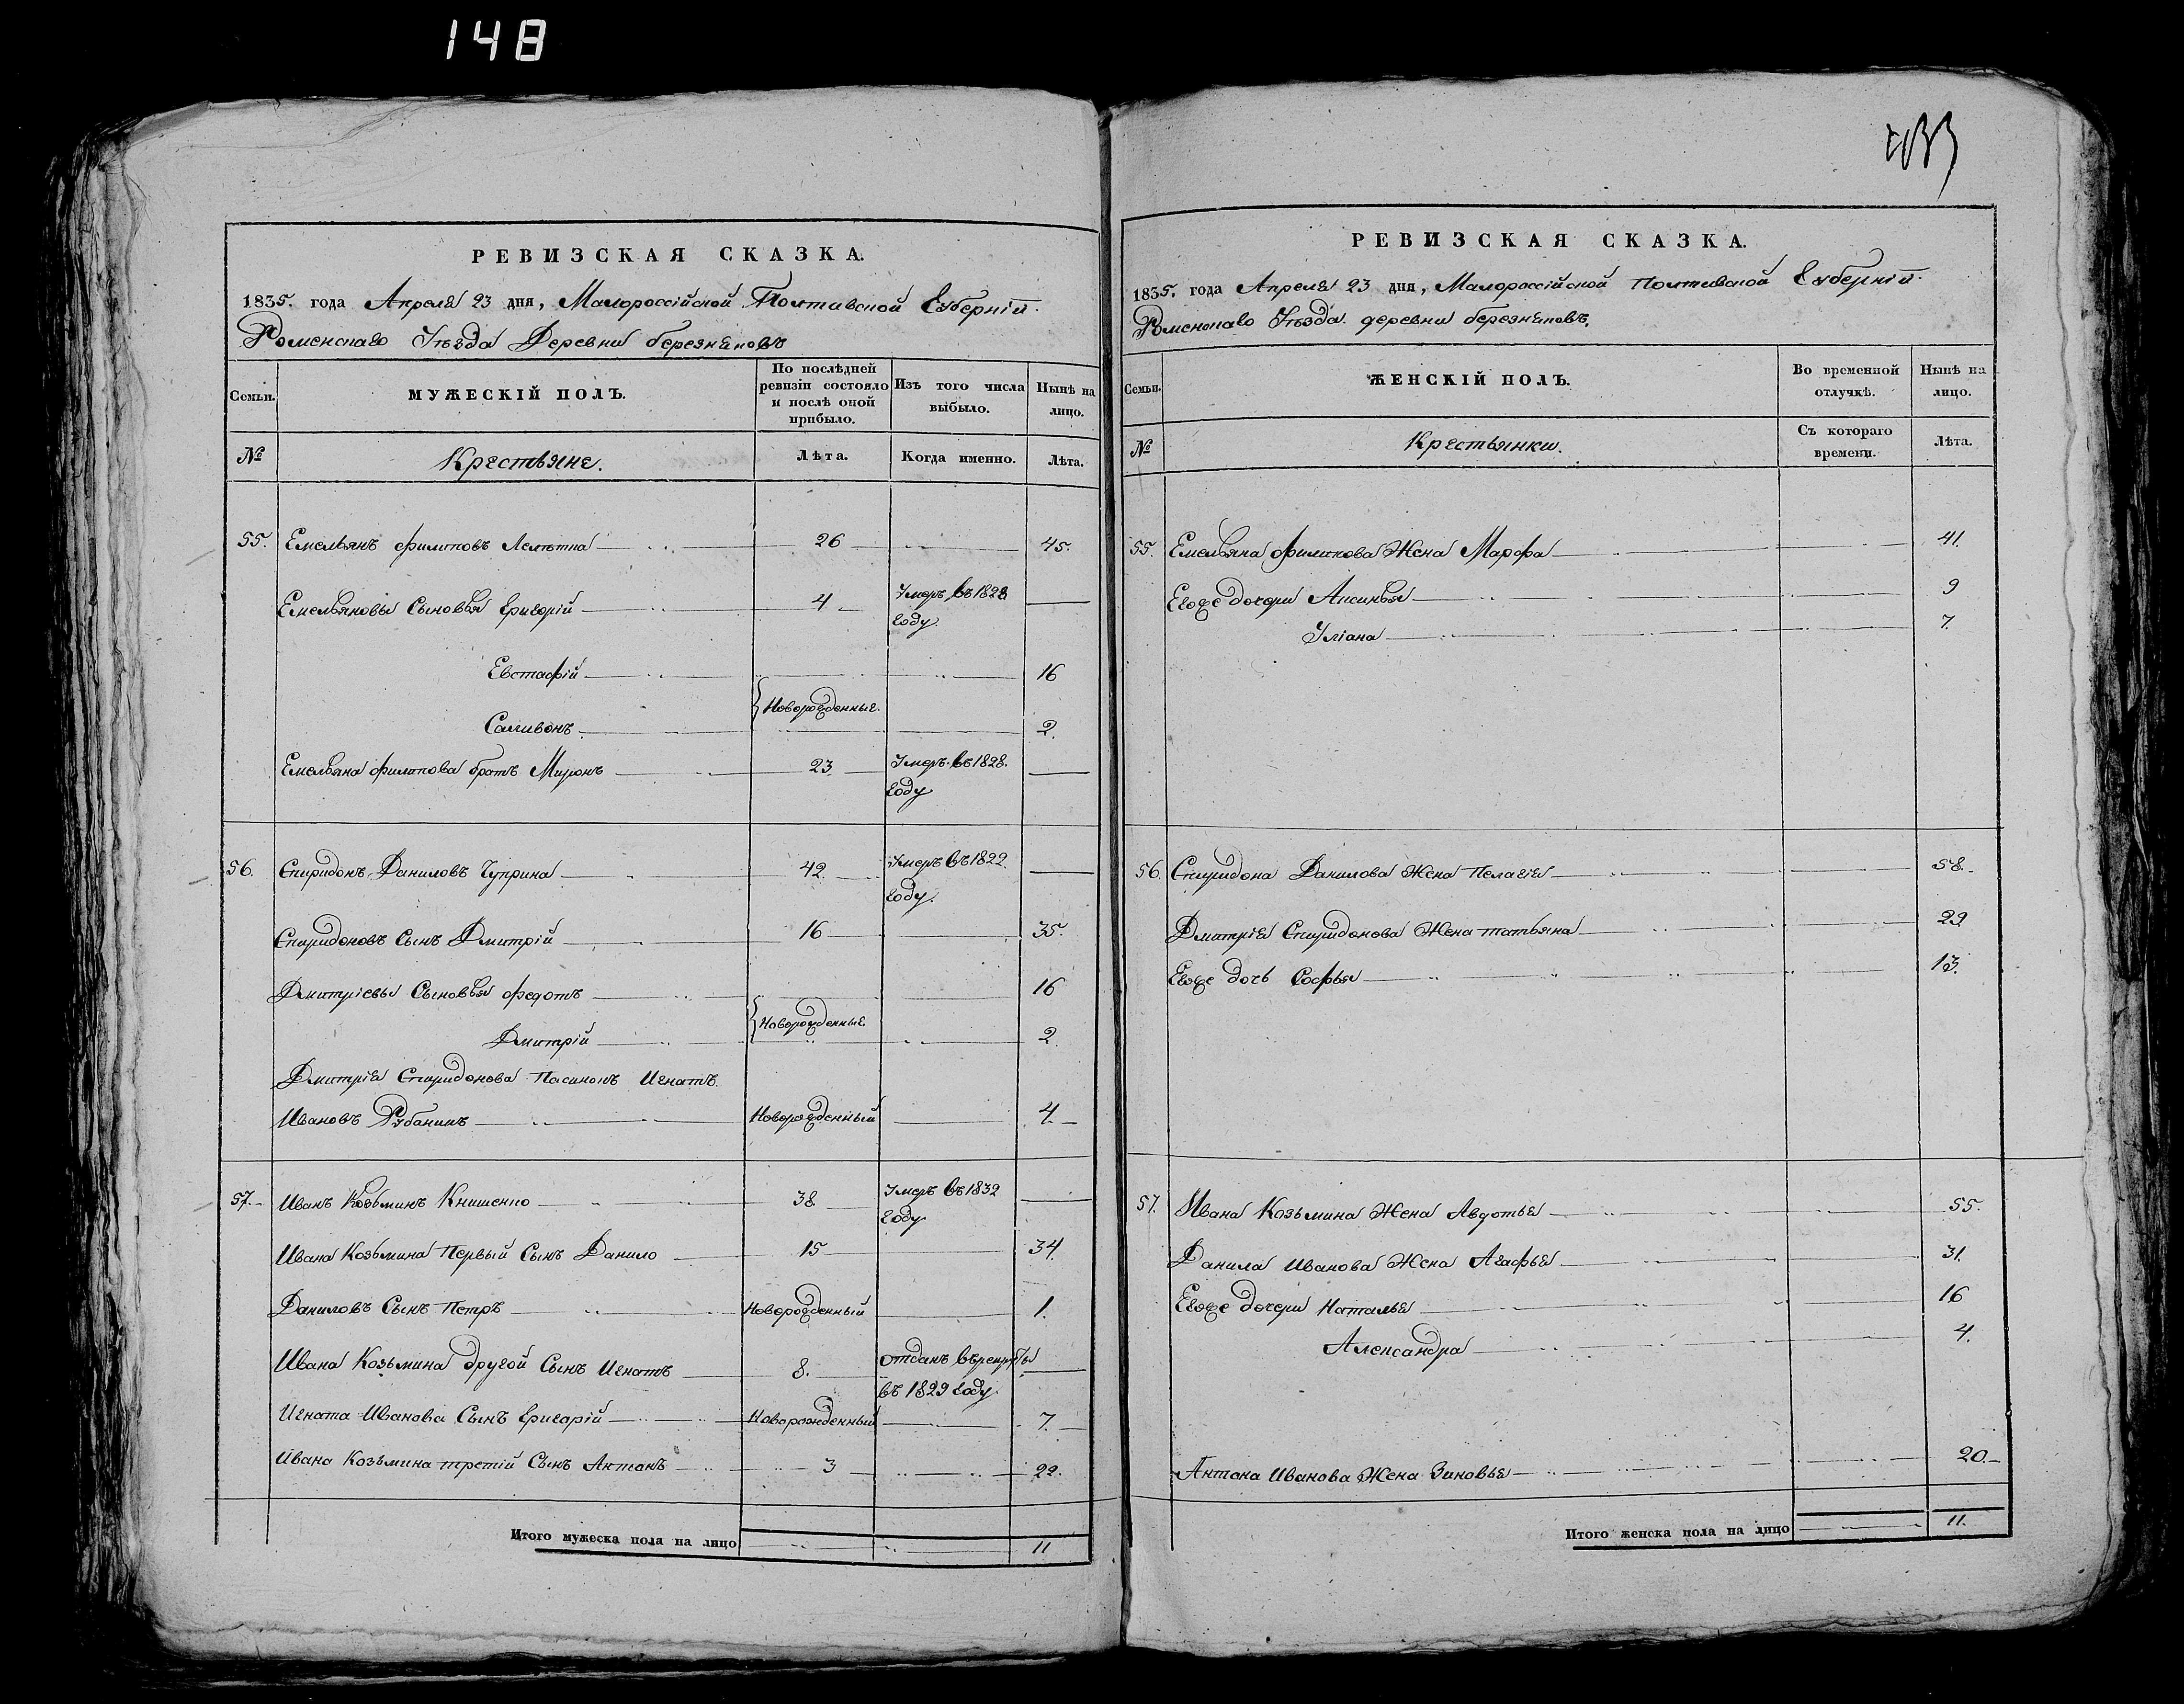 148
433
РЕВИЗСКАЯ СКАЗКА.
1835. года Апреля 23 дня, Малороссійской Полтавской Губерніи.
Роменскаго Уѣзда Деревни березняковъ
Семьи.
МУЖЕСКІЙ ПОЛЪ.
По послѣдней ревизіи состояло и послѣ оной прибыло.
Изъ того числа выбыло.
Нынѣ на лицо.
№
Крестьяне.
Лѣта.
Когда именно.
Лѣта.
55. Емельянъ филиповъ 26 45.
Емельяновы Сыновья Григорій 4 Умеръ въ 1828 году.
Евстафій 16
Новорожденные.
Саливонъ 2.
Емельяна филипова братъ Миронъ 23 Умеръ въ 1828. году
56. Спиридонъ Даниловъ Чуприна 42 Умеръ въ 1822 году.
Спиридоновъ Сынъ Дмитрій 16 35.
Дмитріевы Сыновья федотъ 16
Новорожденные
Дмитрій 2.
Дмитрія Спиридонова Пасинокъ Игнатъ
Ивановъ Рубаникъ Новорожденный 4
57. Иванъ Козьминъ Книшенко 38 Умеръ въ 1832 году
Ивана Козьмина Первый Сынъ Данило 15 34.
Даниловъ Сынъ Петръ Новорожденный 1.
Ивана Козьмина другой Сынъ Игнатъ 8. отданъ въ рекруты въ 1829 году
Игната Иванова Сынъ Григорій Новорожденный 7.
Ивана Козьмина третій Сынъ Антонъ 3 22.
Итого мужеска пола на лицо 11
РЕВИЗСКАЯ СКАЗКА.
1835. года Апреля 23 дня, Малороссійской Полтавской Губерніи.
Роменскаго Уѣзда деревни березняковъ.
Семьи.
ЖЕНСКІЙ ПОЛЪ.
Во временной отлучкѣ.
Нынѣ на лицо.
№
Крестьянки.
Съ котораго времени.
Лѣта.
55. Емельяна филипова Жена Марфа 41.
Егоже дочери Аксинья 9
Уліана 7.
56. Спиридона Данилова Жена Пелагія 58.
Дмитрія Спиридонова Жена татьяна 29
Егоже дочь Софья 13.
57. Ивана Козьмина Жена Авдотья 55.
Данила Иванова Жена Агафья 31.
Егоже дочери Наталья 16
Александра 4.
Антона Иванова Жена Зиновья 20.
Итого женска пола на лицо 11.